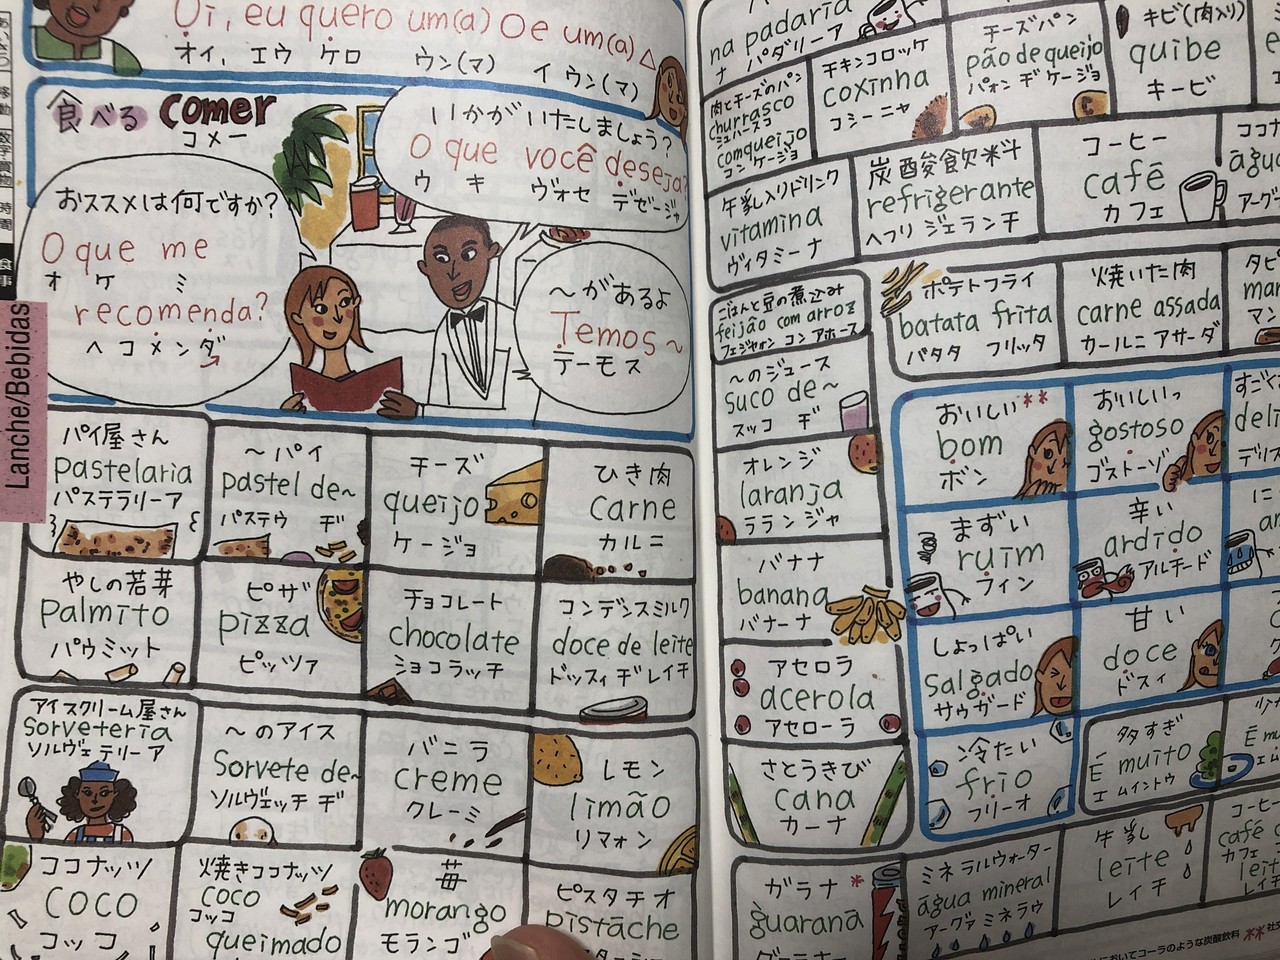 Oi, eu quero um(a) O e um(a) △
オイ, エウ ケロ ウン(マ) イ ウン(マ)
食べる comer
コメー
いかがいたしましょう?
O que você deseja?
ウ キ ヴォセ デゼージャ
おススメは何ですか?
O que me
オ ケ ミ
recomenda?
ヘコメンダ
〜があるよ
Temos〜
テーモス
Lanche/Bebidas
食事
パイ屋さん
pastelaria
パステラリーア
〜パイ
pastel de〜
パステウ ヂ
チーズ
queijo
ケージョ
ひき肉
carne
カルニ
やしの若芽
palmito
パウミット
ピザ
pizza
ピッツァ
チョコレート
chocolate
ショコラッチ
コンデンスミルク
doce de leite
ドッスィ ヂ レイチ
アイスクリーム屋さん
sorveteria
ソルヴェテリーア
〜のアイス
Sorvete de〜
ソルヴェッチ ヂ
バニラ
creme
クレーミ
レモン
limão
リマォン
ココナッツ
coco
コッコ
焼きココナッツ
coco
コッコ
queimado
苺
morango
モランゴ
ピスタチオ
pistache
na padaria
ナ パダリーア
肉とチーズのパン
churrasco
シュハースコ
com queijo
コン ケージョ
チキンコロッケ
coxinha
コシーニャ
チーズパン
pão de queijo
パォン ヂ ケージョ
キビ(肉入り)
quibe
キービ
牛乳入りドリンク
vitamina
ヴィタミーナ
炭酸飲料
refrigerante
ヘフリジェランチ
コーヒー
café
カフェ
ごはんと豆の煮込み
feijão com arroz
フェジャォン コン アホース
ポテトフライ
batata frita
バタタ フリッタ
焼いた肉
carne assada
カールニ アサーダ
〜のジュース
suco de〜
スッコ ヂ
オレンジ
laranja
ラランジャ
バナナ
banana
バナーナ
アセロラ
acerola
アセローラ
さとうきび
cana
カーナ
ガラナ*
guaraná
おいしい**
bom
ボン
おいしいっ
gostoso
ゴストーゾ
まずい
ruim
フイン
辛い
ardido
アルヂード
しょっぱい
salgado
サウガード
甘い
doce
ドスィ
冷たい
frio
フリーオ
多すぎ
É muito
エ ムイントゥ
ミネラルウォーター
água mineral
アーグア ミネラウ
牛乳
leite
レイチ
においてコーラのような炭酸飲料